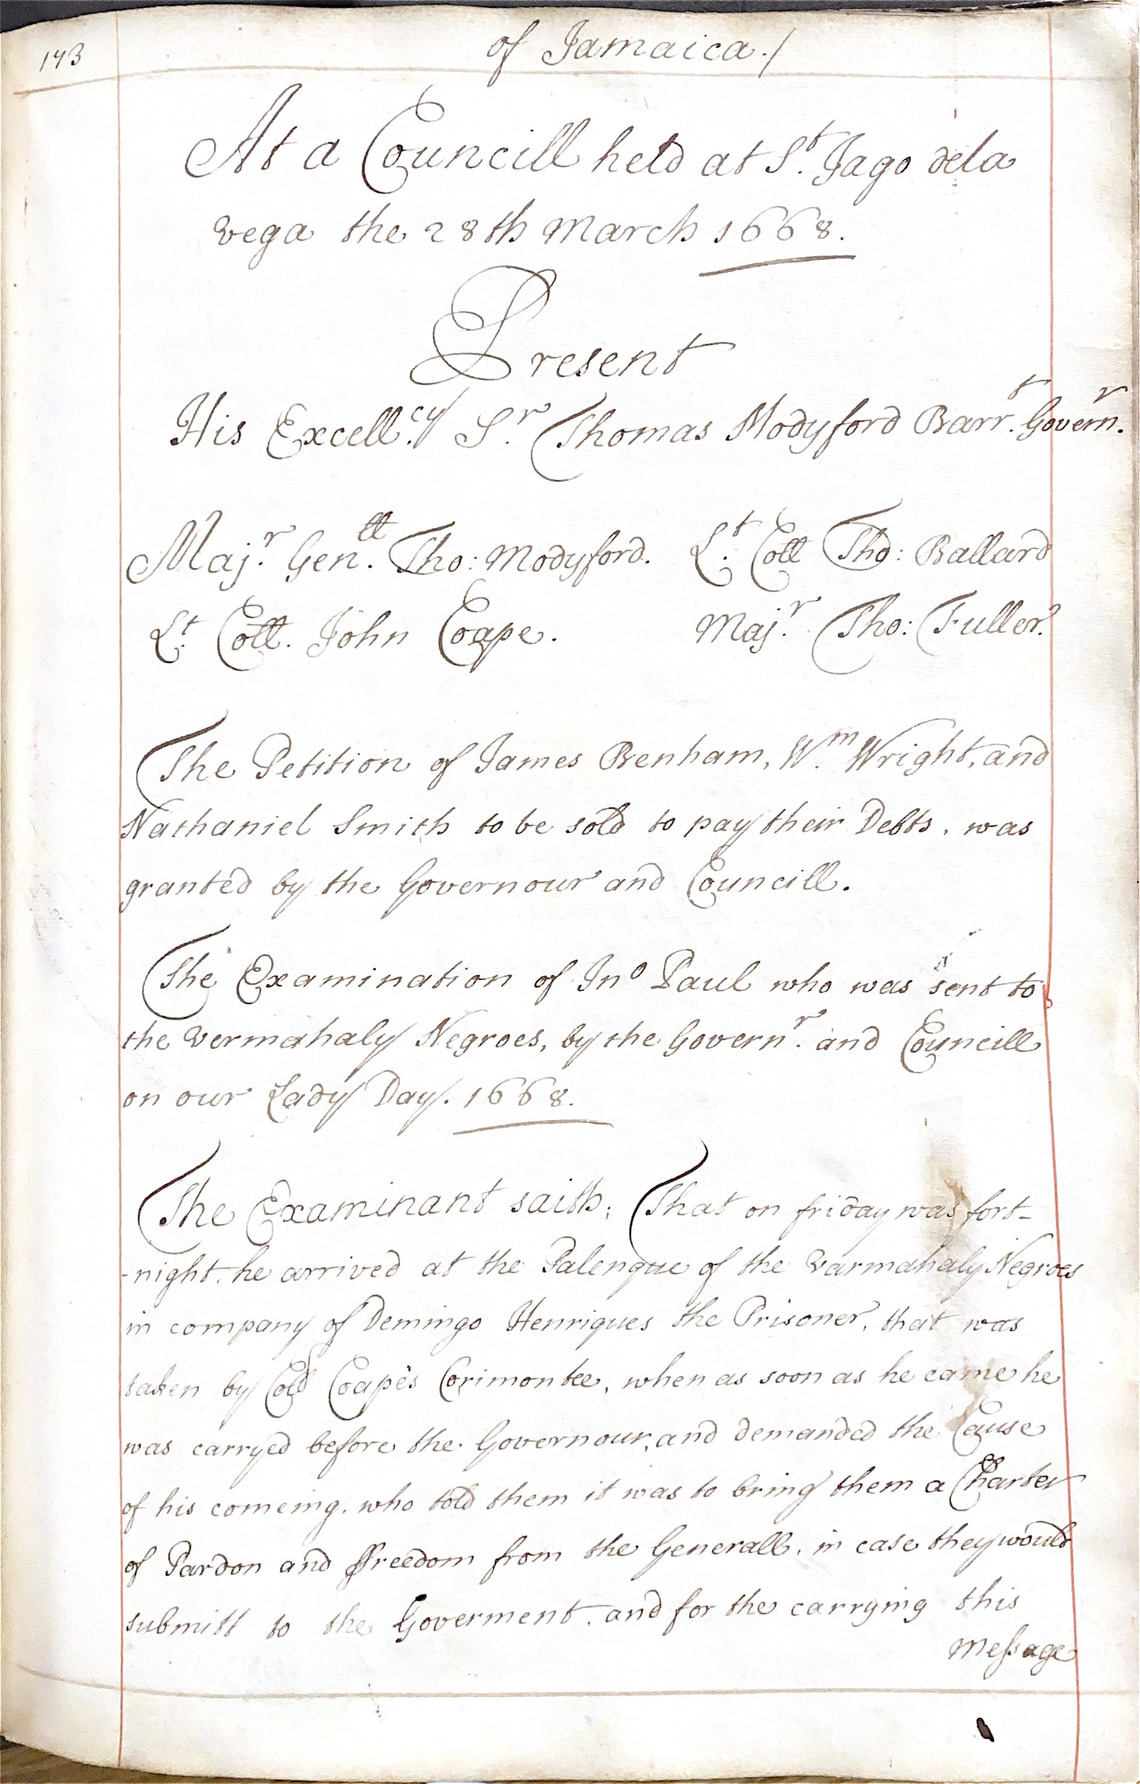 173
of Jamaica./
At a Councill held at St. Jago dela
vega the 28th March 1668.
Present
His Excell.cy Sr. Thomas Modyford Barrt. Governr.
Majr. Genll. Tho: Modyford. Lt. Coll Tho: Ballard
Lt. Coll. John Coape. Majr. Tho: Fuller.
The Petition of James Benham, Wm. Wright, and
Nathaniel Smith to be sold to pay their Debts, was
granted by the Governour and Councill.
The Examination of Jno Paul who was sent to
the vermahaly Negroes, by the Governr. and Councill
on our Lady Day. 1668.
The Examinant saith; That on friday was fort-
-night, he arrived at the Palenque of the varmahaly Negroes
in company of Demingo Henriques the Prisoner, that was
taken by Coll Coape's Corimontee, when as soon as he came he
was carryed before the Governour, and demanded the Cause
of his comeing, who told them it was to bring them a Charter
of Pardon and ffreedom from the Generall, in case they would
submitt to the Goverment, and for the carrying this
Message